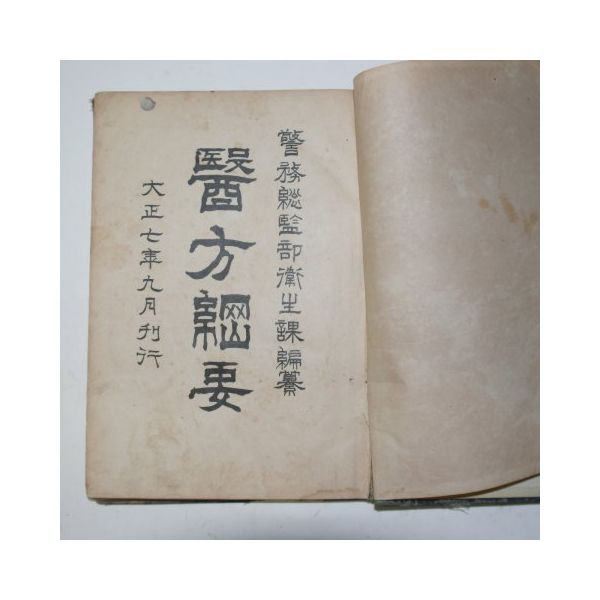 警務總監部衛生課編纂
醫方綱要
大正七年九月刊行